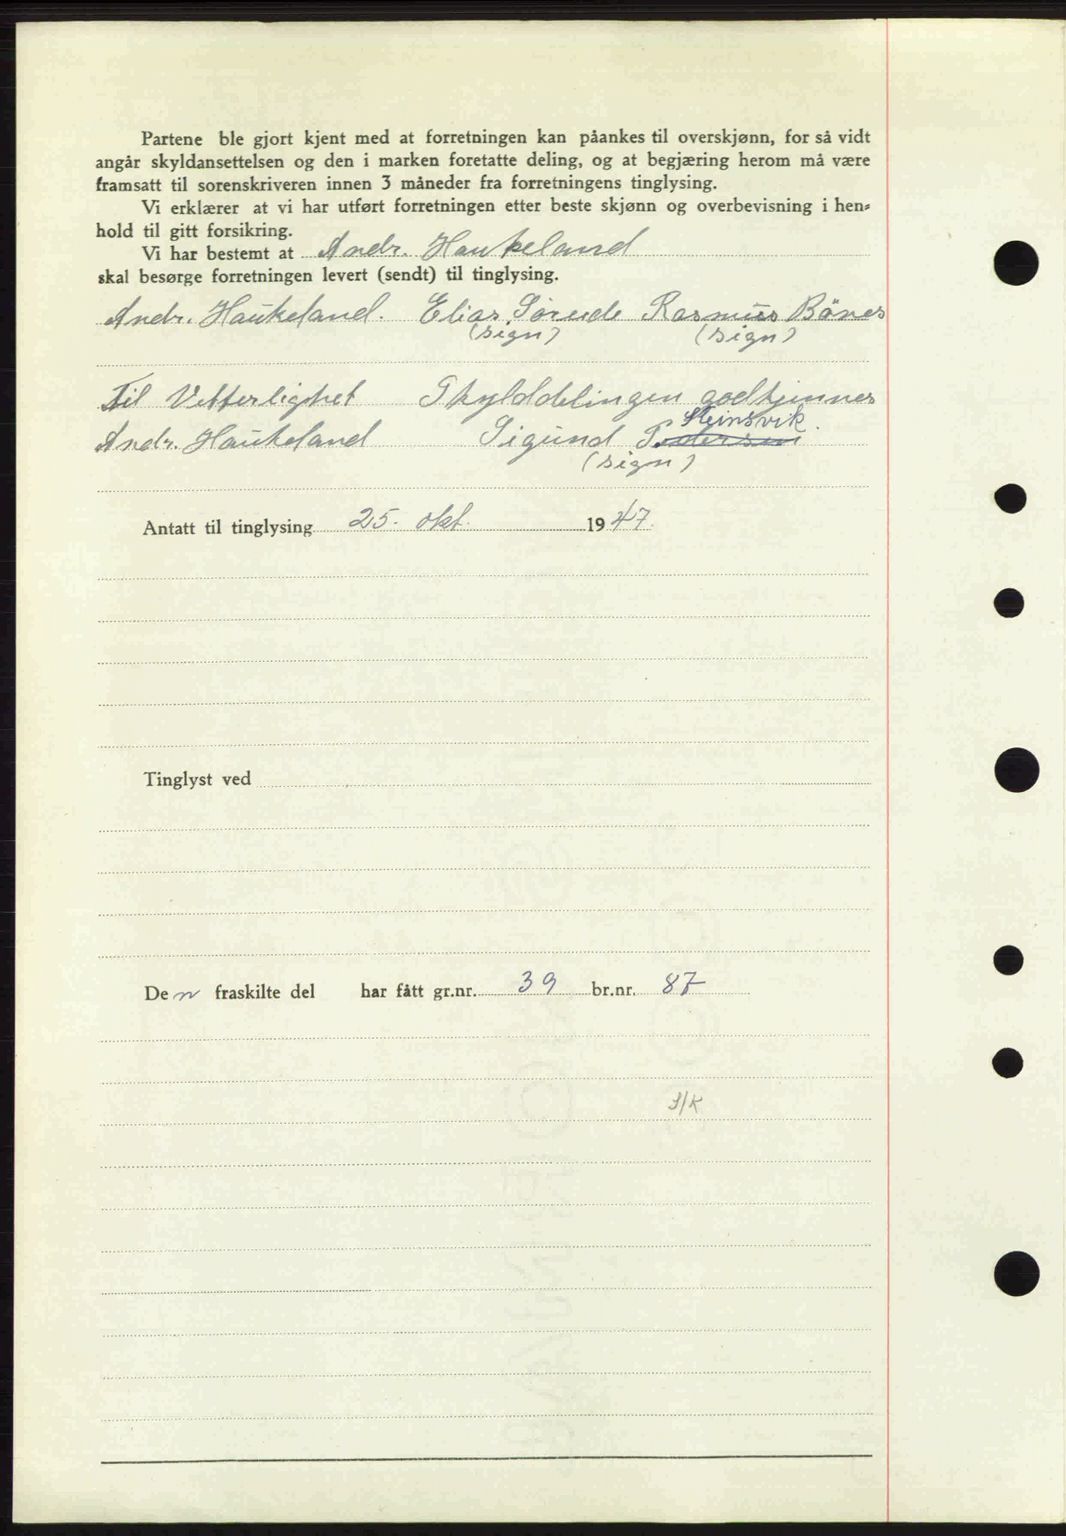 Partene ble gjort kjent med at forretningen kan påankes til overskjønn, for så vidt
angår skyldansettelsen og den i marken foretatte deling, og at begjæring herom må være
framsatt til sorenskriveren innen 3 måneder fra forretningens tinglysing.
Vi erklærer at vi har utført forretningen etter beste skjønn og overbevisning i hen-
hold til gitt forsikring.
Vi har bestemt at Andr. Haukeland
skal besørge forretningen levert (sendt) til tinglysing.
Andr. Haukeland. Elias Rasmus Bönes
(sign) (sign)
Til Vitterlighet Skylddelingen godkjennes
Steinsvik.
Andr. Haukeland Sigund Pedersen
(sign)
Antatt til tinglysing 25. okt. 1947.
Tinglyst ved
Den fraskilte del har fått gr.nr. 39 br.nr. 87